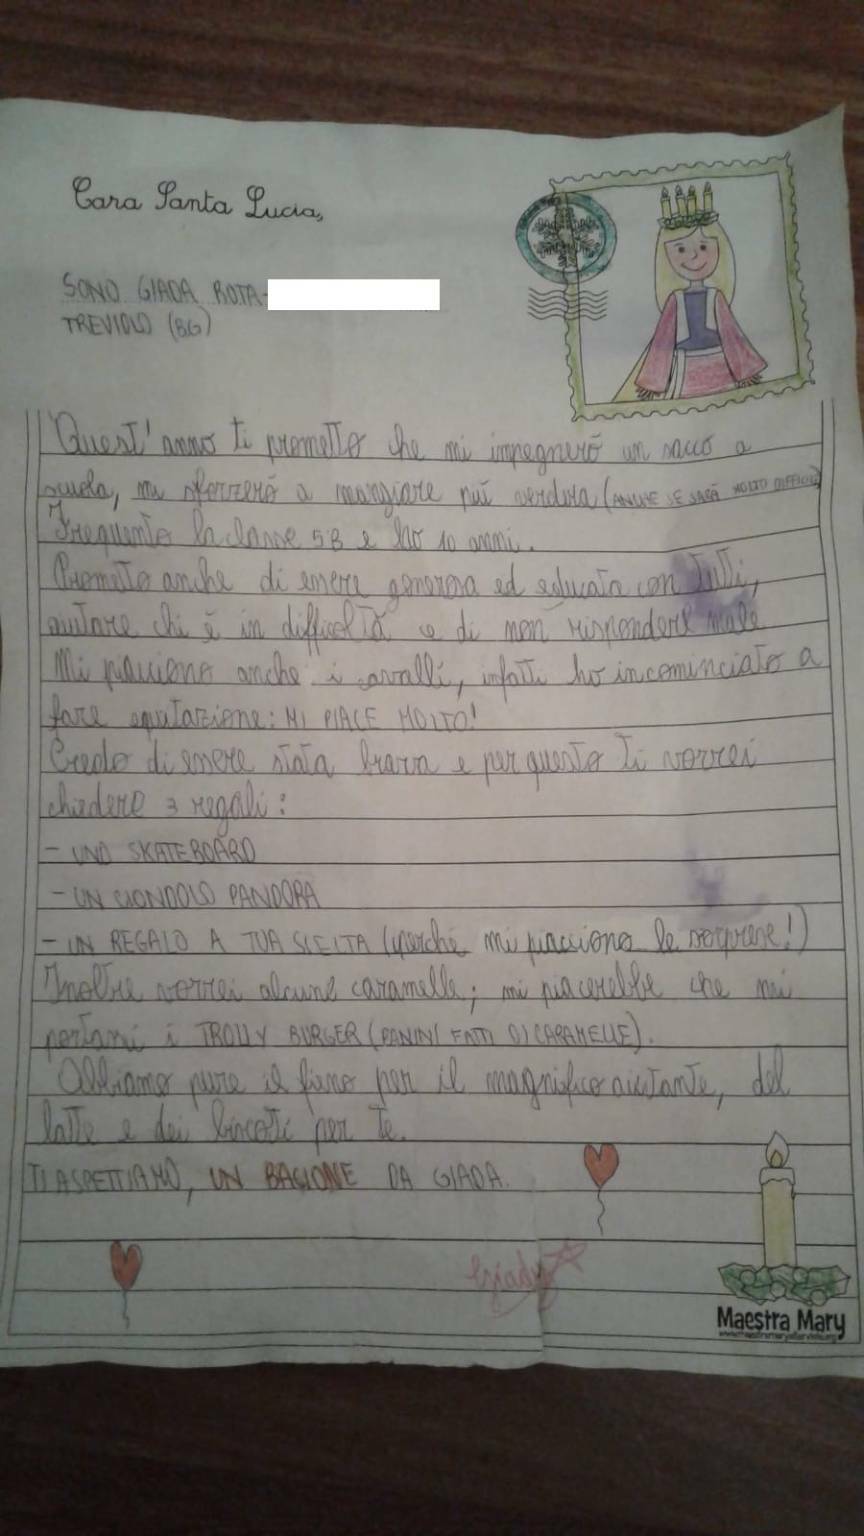 Cara Santa Lucia,
SONO GIADA ROTA-
TREVIOLO (BG)
Quest'anno ti prometto che mi impegnerò un sacco a
scuola, mi sforzerò a mangiare più verdura (ANCHE SE SARÀ MOLTO DIFFICILE)
Frequento la classe 5B e ho 10 anni.
Prometto anche di essere generosa ed educata con tutti,
aiutare chi è in difficoltà e di non rispondere male
Mi piacciono anche i cavalli, infatti ho incominciato a
fare equitazione: MI PIACE MOLTO!
Credo di essere stata brava e per questo ti vorrei
chiedere 3 regali:
- UNO SKATEBOARD
- UN CIONDOLO PANDORA
- UN REGALO A TUA SCELTA (perché mi piacciono le sorprese!)
Inoltre vorrei alcune caramelle; mi piacerebbe che mi
portassi i TROLLY BURGER (PANINI FATTI DI CARAMELLE).
Abbiamo pure il fieno per il magnifico aiutante, del
latte e dei biscotti per te.
TI ASPETTIAMO, UN BACIONE DA GIADA.
Giady
Maestra Mary